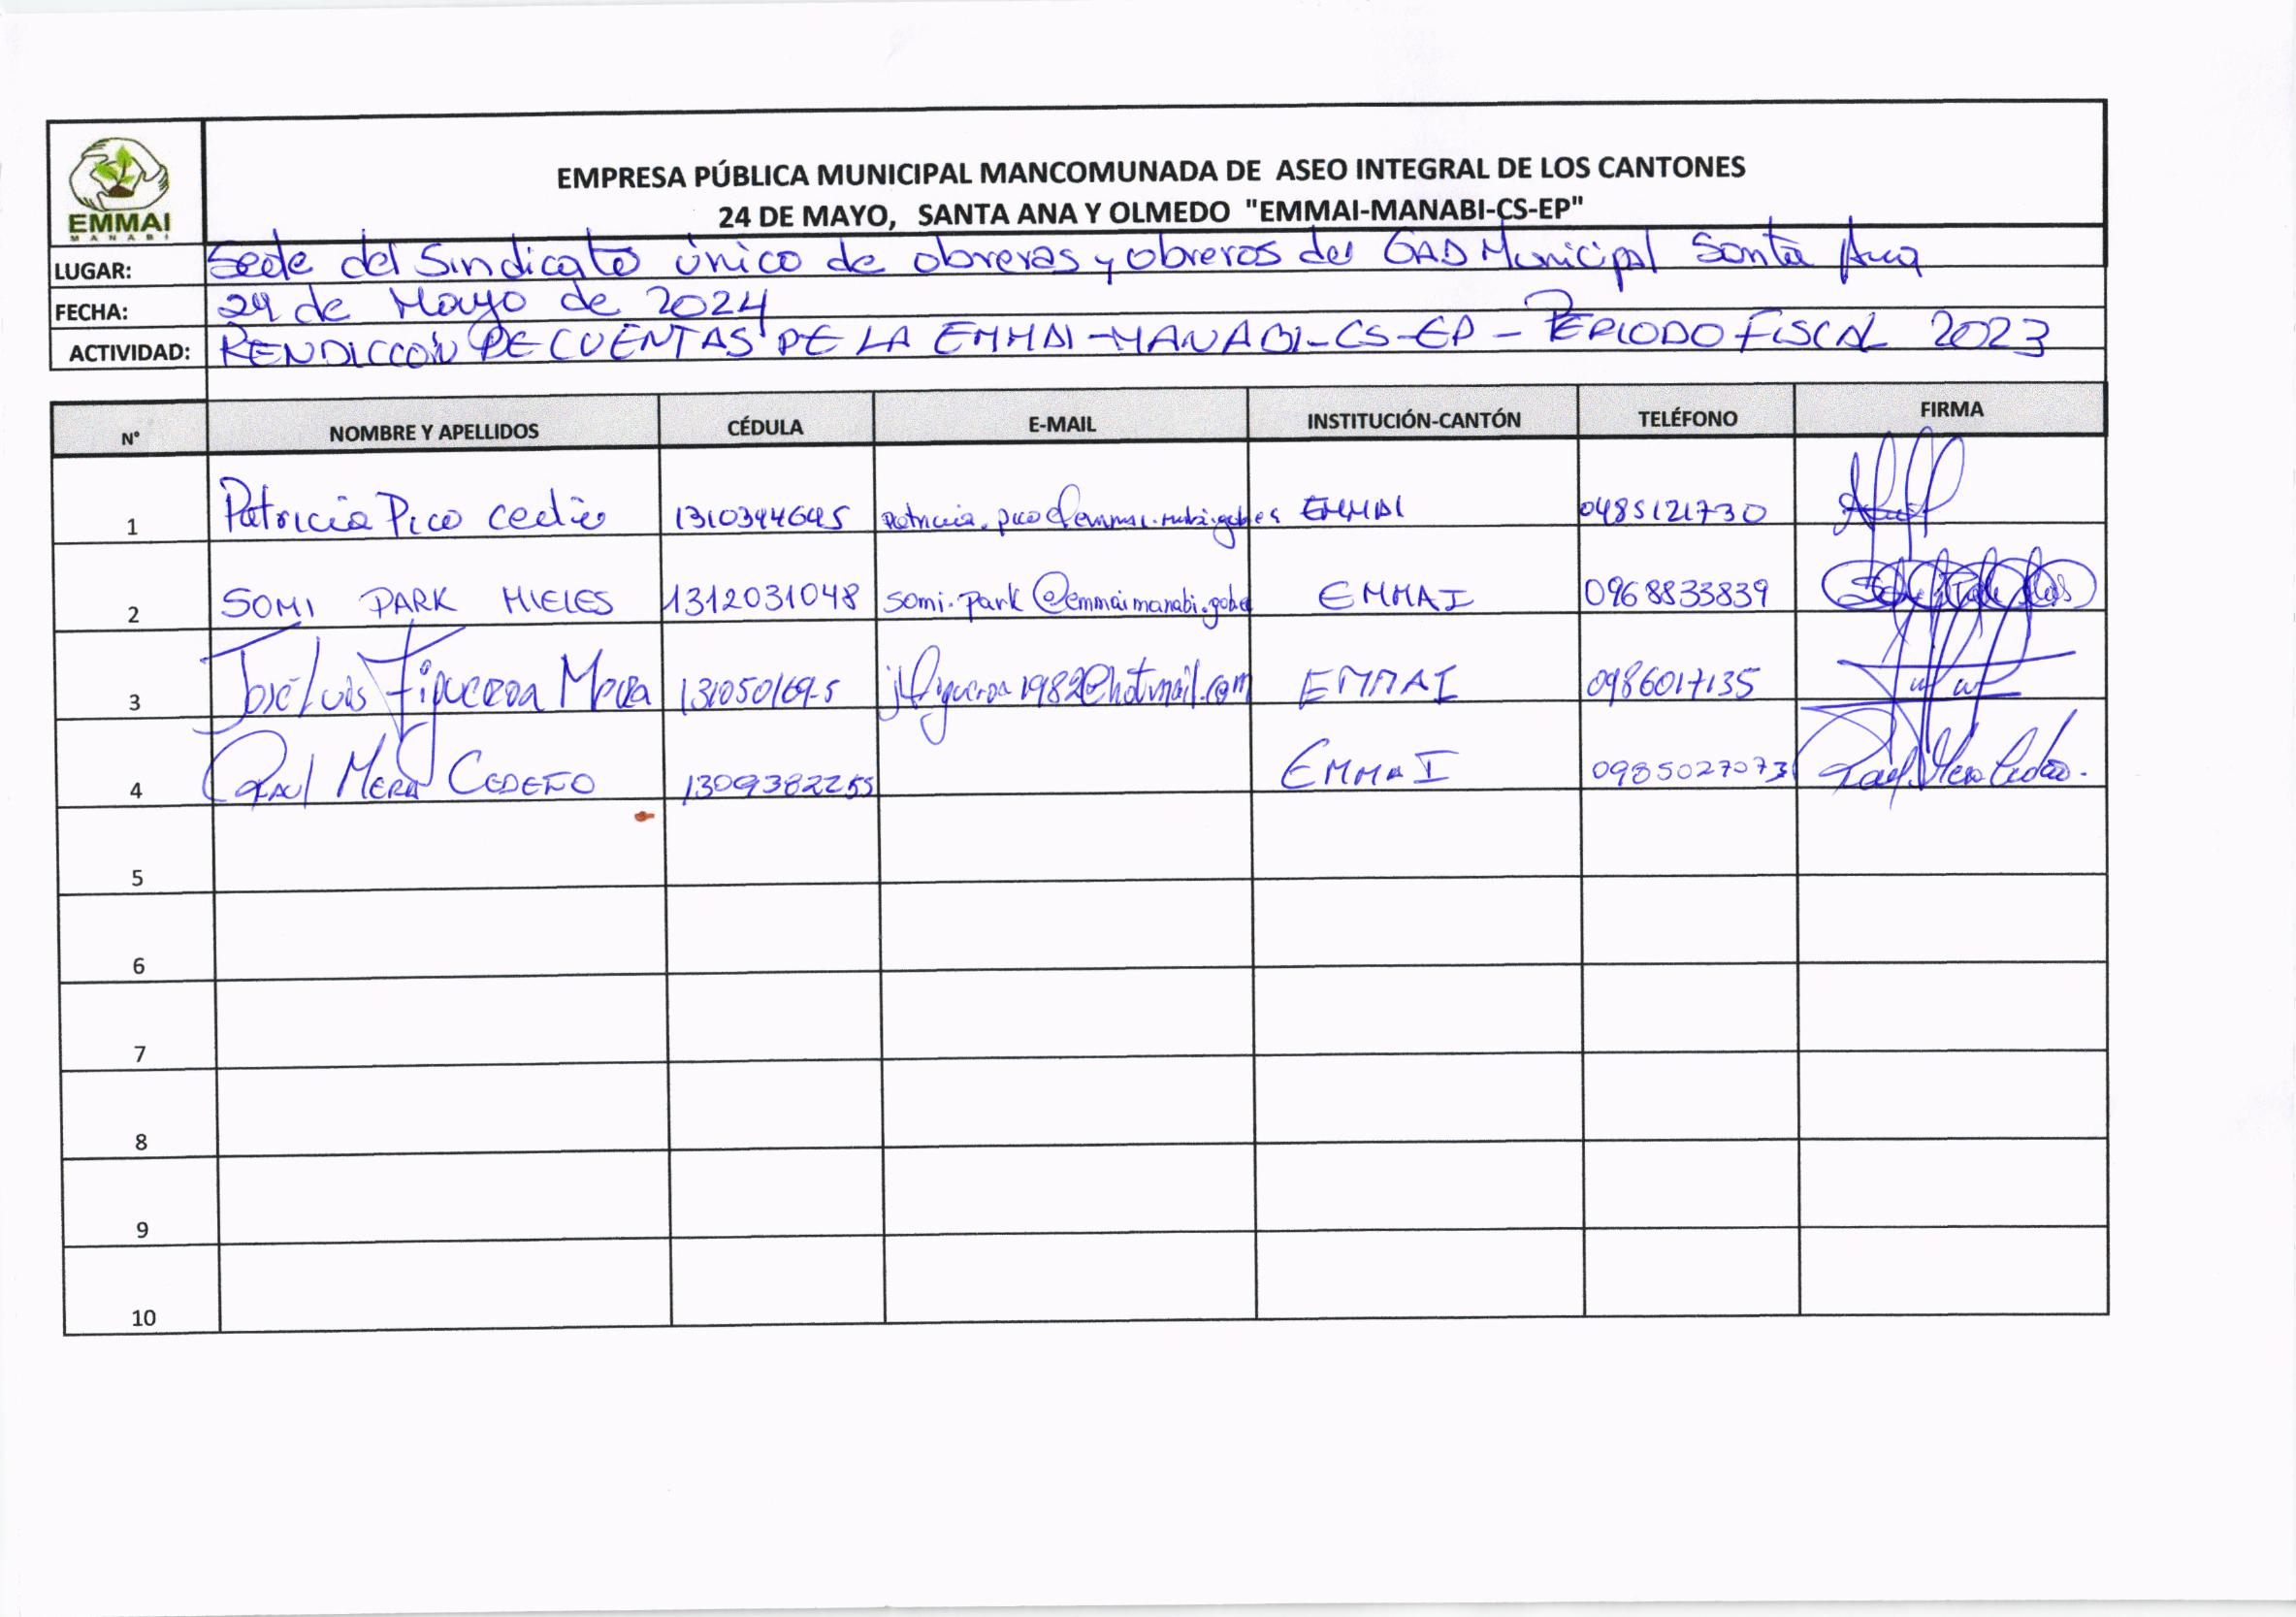 EMMAI
MANABI
EMPRESA PÚBLICA MUNICIPAL MANCOMUNADA DE ASEO INTEGRAL DE LOS CANTONES
24 DE MAYO, SANTA ANA Y OLMEDO "EMMAI-MANABI-CS-EP"
LUGAR: Sede del Sindicato único de obreras y obreros del GAD Municipal Santa Ana
FECHA: 29 de Mayo de 2024
ACTIVIDAD: RENDICCOIN DE CUENTAS DE LA EMMAI-MANABI-CS-EP - PERIODO FISCAL 2023
N° NOMBRE Y APELLIDOS CÉDULA E-MAIL INSTITUCIÓN-CANTÓN TELÉFONO FIRMA
1 Patricia Pico Cedeño 1310344645 EMMAI 0485121730
2 SOMI PARK MIELES 1312031048 somi.park@emmaimanabi.gob.e EMMAI 0968833839
3 José Luis Figueroa Mera 131050169-5 jlfigueroa1982@hotmail.com EMMAI 0986017135
4 Raul MERA CEDEÑO 1309382255 EMMAI 0985027073
5
6
7
8
9
10